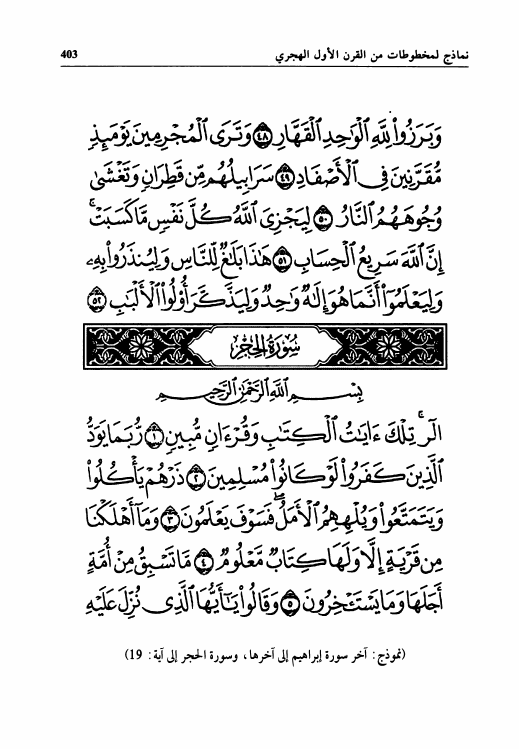 نماذج لمخطوطات من القرن الأول الهجري 403
وَبَرَزُوا۟ لِلَّهِ ٱلْوَٰحِدِ ٱلْقَهَّارِ ٤٨ وَتَرَى ٱلْمُجْرِمِينَ يَوْمَئِذٍ
مُّقَرَّنِينَ فِى ٱلْأَصْفَادِ ٤٩ سَرَابِيلُهُم مِّن قَطِرَانٍ وَتَغْشَىٰ
وُجُوهَهُمُ ٱلنَّارُ ٥٠ لِيَجْزِىَ ٱللَّهُ كُلَّ نَفْسٍ مَّا كَسَبَتْ ۚ
إِنَّ ٱللَّهَ سَرِيعُ ٱلْحِسَابِ ٥١ هَٰذَا بَلَٰغٌ لِّلنَّاسِ وَلِيُنذَرُوا۟ بِهِۦ
وَلِيَعْلَمُوٓا۟ أَنَّمَا هُوَ إِلَٰهٌ وَٰحِدٌ وَلِيَذَّكَّرَ أُو۟لُوا۟ ٱلْأَلْبَٰبِ ٥٢
سُورَةُ الحِجْرِ
بِسْمِ ٱللَّهِ ٱلرَّحْمَٰنِ ٱلرَّحِيمِ
الٓر ۚ تِلْكَ ءَايَٰتُ ٱلْكِتَٰبِ وَقُرْءَانٍ مُّبِينٍ ١ رُّبَمَا يَوَدُّ
ٱلَّذِينَ كَفَرُوا۟ لَوْ كَانُوا۟ مُسْلِمِينَ ٢ ذَرْهُمْ يَأْكُلُوا۟
وَيَتَمَتَّعُوا۟ وَيُلْهِهِمُ ٱلْأَمَلُ ۖ فَسَوْفَ يَعْلَمُونَ ٣ وَمَآ أَهْلَكْنَا
مِن قَرْيَةٍ إِلَّا وَلَهَا كِتَابٌ مَّعْلُومٌ ٤ مَّا تَسْبِقُ مِنْ أُمَّةٍ
أَجَلَهَا وَمَا يَسْتَـْٔخِرُونَ ٥ وَقَالُوا۟ يَٰٓأَيُّهَا ٱلَّذِى نُزِّلَ عَلَيْهِ
(نموذج: آخر سورة إبراهيم إلى آخرها، وسورة الحجر إلى آية: 19)